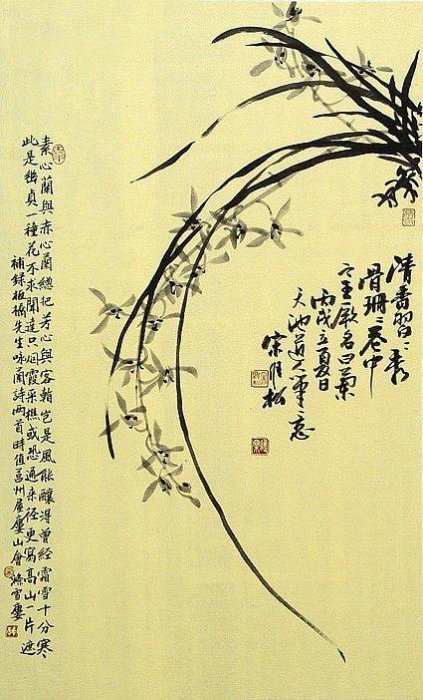 清香習〻秀
骨珊〻叢中
之王厥名曰蘭
丙戌立夏日
天池道人筆意
宋 松
素心蘭與赤心蘭總把芳心與客 豈是風能釀得曾經霜雪十分寒
此是幽貞一種花不求聞達只煙霞采樵或恐通來徑更寫高山一片遮
補録板橋先生咏蘭詩兩首時值莒州屋樓山會 雪